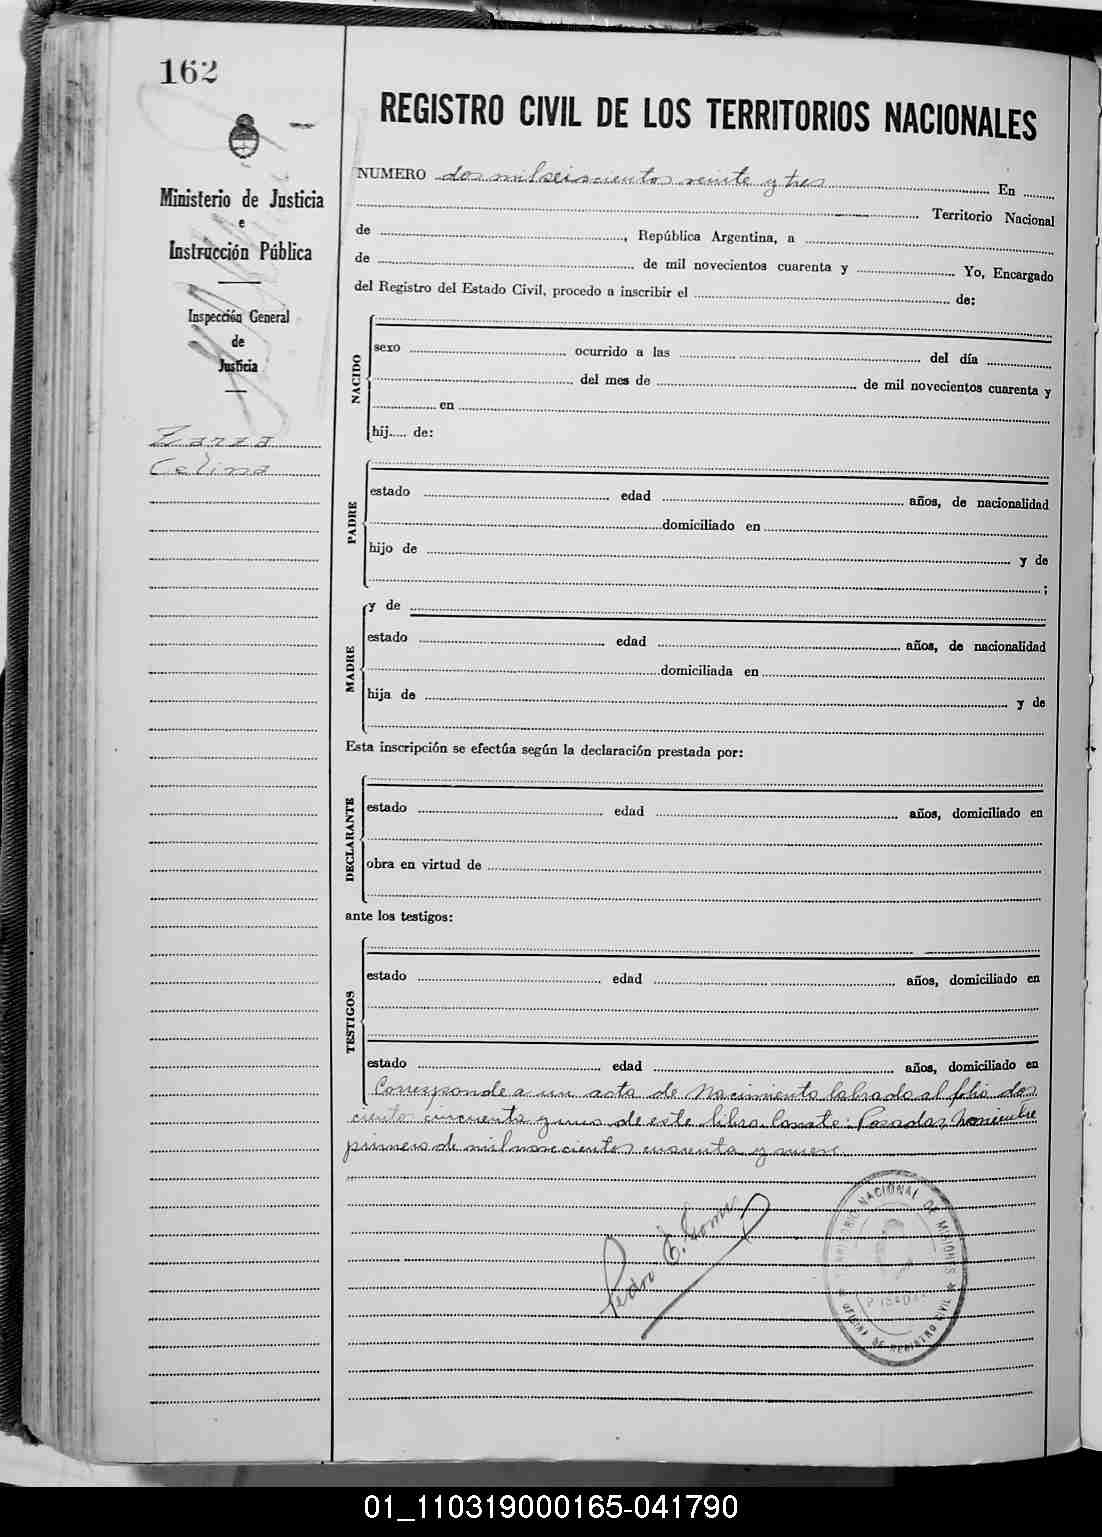 162
REGISTRO CIVIL DE LOS TERRITORIOS NACIONALES
Ministerio de Justicia
e
Instrucción Pública
Inspección General
de
Justicia
Zarza
Celina
NUMERO dos mil seiscientos veinte y tres En
Territorio Nacional
de , República Argentina, a
de de mil novecientos cuarenta y Yo, Encargado
del Registro del Estado Civil, procedo a inscribir el de:
NACIDO
sexo ocurrido a las del día
del mes de de mil novecientos cuarenta y
en
hij..... de:
PADRE
estado edad años, de nacionalidad
domiciliado en
hijo de y de
;
MADRE
y de
estado edad años, de nacionalidad
domiciliada en
hija de y de
Esta inscripción se efectúa según la declaración prestada por:
DECLARANTE
estado edad años, domiciliado en
obra en virtud de
ante los testigos:
TESTIGOS
estado edad años, domiciliado en
estado edad años, domiciliado en
Corresponde a un acta de Nacimiento labrado al folio dos
cientos cincuenta y uno de este libro. Conste: Posadas, Noviembre
primero de mil novecientos cuarenta y nueve
Pedro E. Gomez
TERRITORIO NACIONAL DE MISIONES
POSADAS
OFICINA DE REGISTRO CIVIL
01_110319000165-041790